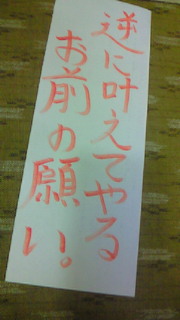 逆に叶えてやる
お前の願い。